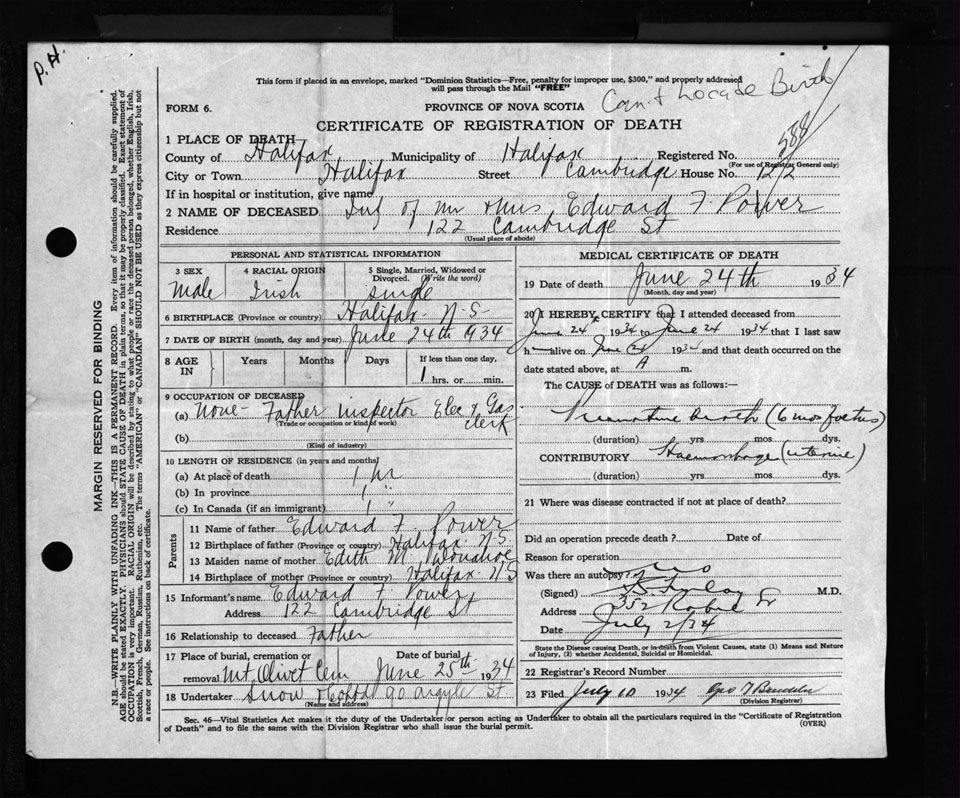 P.H.
This form if placed in an envelope, marked "Dominion Statistics—Free, penalty for improper use, $300," and properly addressed
will pass through the Mail "FREE"
Can't Locate Birth
FORM 6.
PROVINCE OF NOVA SCOTIA
CERTIFICATE OF REGISTRATION OF DEATH
1 PLACE OF DEATH
County of Halifax Municipality of Halifax Registered No. 588
(For use of Registrar General only)
City or Town Halifax Street Cambridge House No. 122
If in hospital or institution, give name
2 NAME OF DECEASED Inf of Mr & Mrs Edward F. Power
Residence 122 Cambridge St
(Usual place of abode)
PERSONAL AND STATISTICAL INFORMATION
3 SEX 4 RACIAL ORIGIN 5 Single, Married, Widowed or
Divorced. (Write the word)
Male Irish single
6 BIRTHPLACE (Province or country) Halifax N-S
7 DATE OF BIRTH (month, day and year) June 24th 1934
8 AGE IN Years Months Days If less than one day,
1 hrs. or min.
9 OCCUPATION OF DECEASED
(a) None - Father Inspector Elec & Gas
clerk
(Trade or occupation or kind of work)
(b)
(Kind of industry)
10 LENGTH OF RESIDENCE (in years and months)
(a) At place of death 1 hr
(b) In province 1 "
(c) In Canada (if an immigrant) "
Parents
11 Name of father Edward F. Power
12 Birthplace of father (Province or country) Halifax N.S
13 Maiden name of mother Edith M Donahoe
14 Birthplace of mother (Province or country) Halifax N.S
15 Informant's name Edward F. Power
Address 122 Cambridge St
16 Relationship to deceased Father
17 Place of burial, cremation or removal Mt. Olivet Cem Date of burial June 25th 1934
18 Undertaker Snow & Co Ltd 90 Argyle St
(Name and address)
MEDICAL CERTIFICATE OF DEATH
19 Date of death June 24th 1934
(Month, day and year)
20 I HEREBY CERTIFY that I attended deceased from
June 24 1934 to June 24 1934 that I last saw
h alive on June 24 193 and that death occurred on the
date stated above, at A m.
The CAUSE of DEATH was as follows:
Premature birth (6 mos foetus)
(duration) yrs mos. dys.
CONTRIBUTORY Haemorrhage (uterine)
(duration) yrs. mos. dys.
21 Where was disease contracted if not at place of death?
Did an operation precede death? Date of
Reason for operation
Was there an autopsy? no
(Signed) M.D.
Address 352 Robie St
Date July 2/34
State the Disease causing Death, or in death from Violent Causes, state (1) Means and Nature
of Injury, (2) whether Accidental, Suicidal or Homicidal.
22 Registrar's Record Number
23 Filed July 10 1934 Geo
(Division Registrar)
Sec. 46—Vital Statistics Act makes it the duty of the Undertaker or person acting as Undertaker to obtain all the particulars required in the "Certificate of Registration
of Death" and to file the same with the Division Registrar who shall issue the burial permit. (OVER)
MARGIN RESERVED FOR BINDING
N.B.—WRITE PLAINLY WITH UNFADING INK—THIS IS A PERMANENT RECORD. Every item of information should be carefully supplied.
AGE should be stated EXACTLY. PHYSICIANS should STATE CAUSE OF DEATH in plain terms, so that it may be properly classified. Exact statement of
OCCUPATION is very important. RACIAL ORIGIN will be described by stating to what people or race the deceased person belonged, whether English, Irish,
Scottish, French, German, Russian, Ruthenian, etc. The terms "AMERICAN" or "CANADIAN" SHOULD NOT BE USED as they express citizenship but not
a race or people. See instructions on back of certificate.